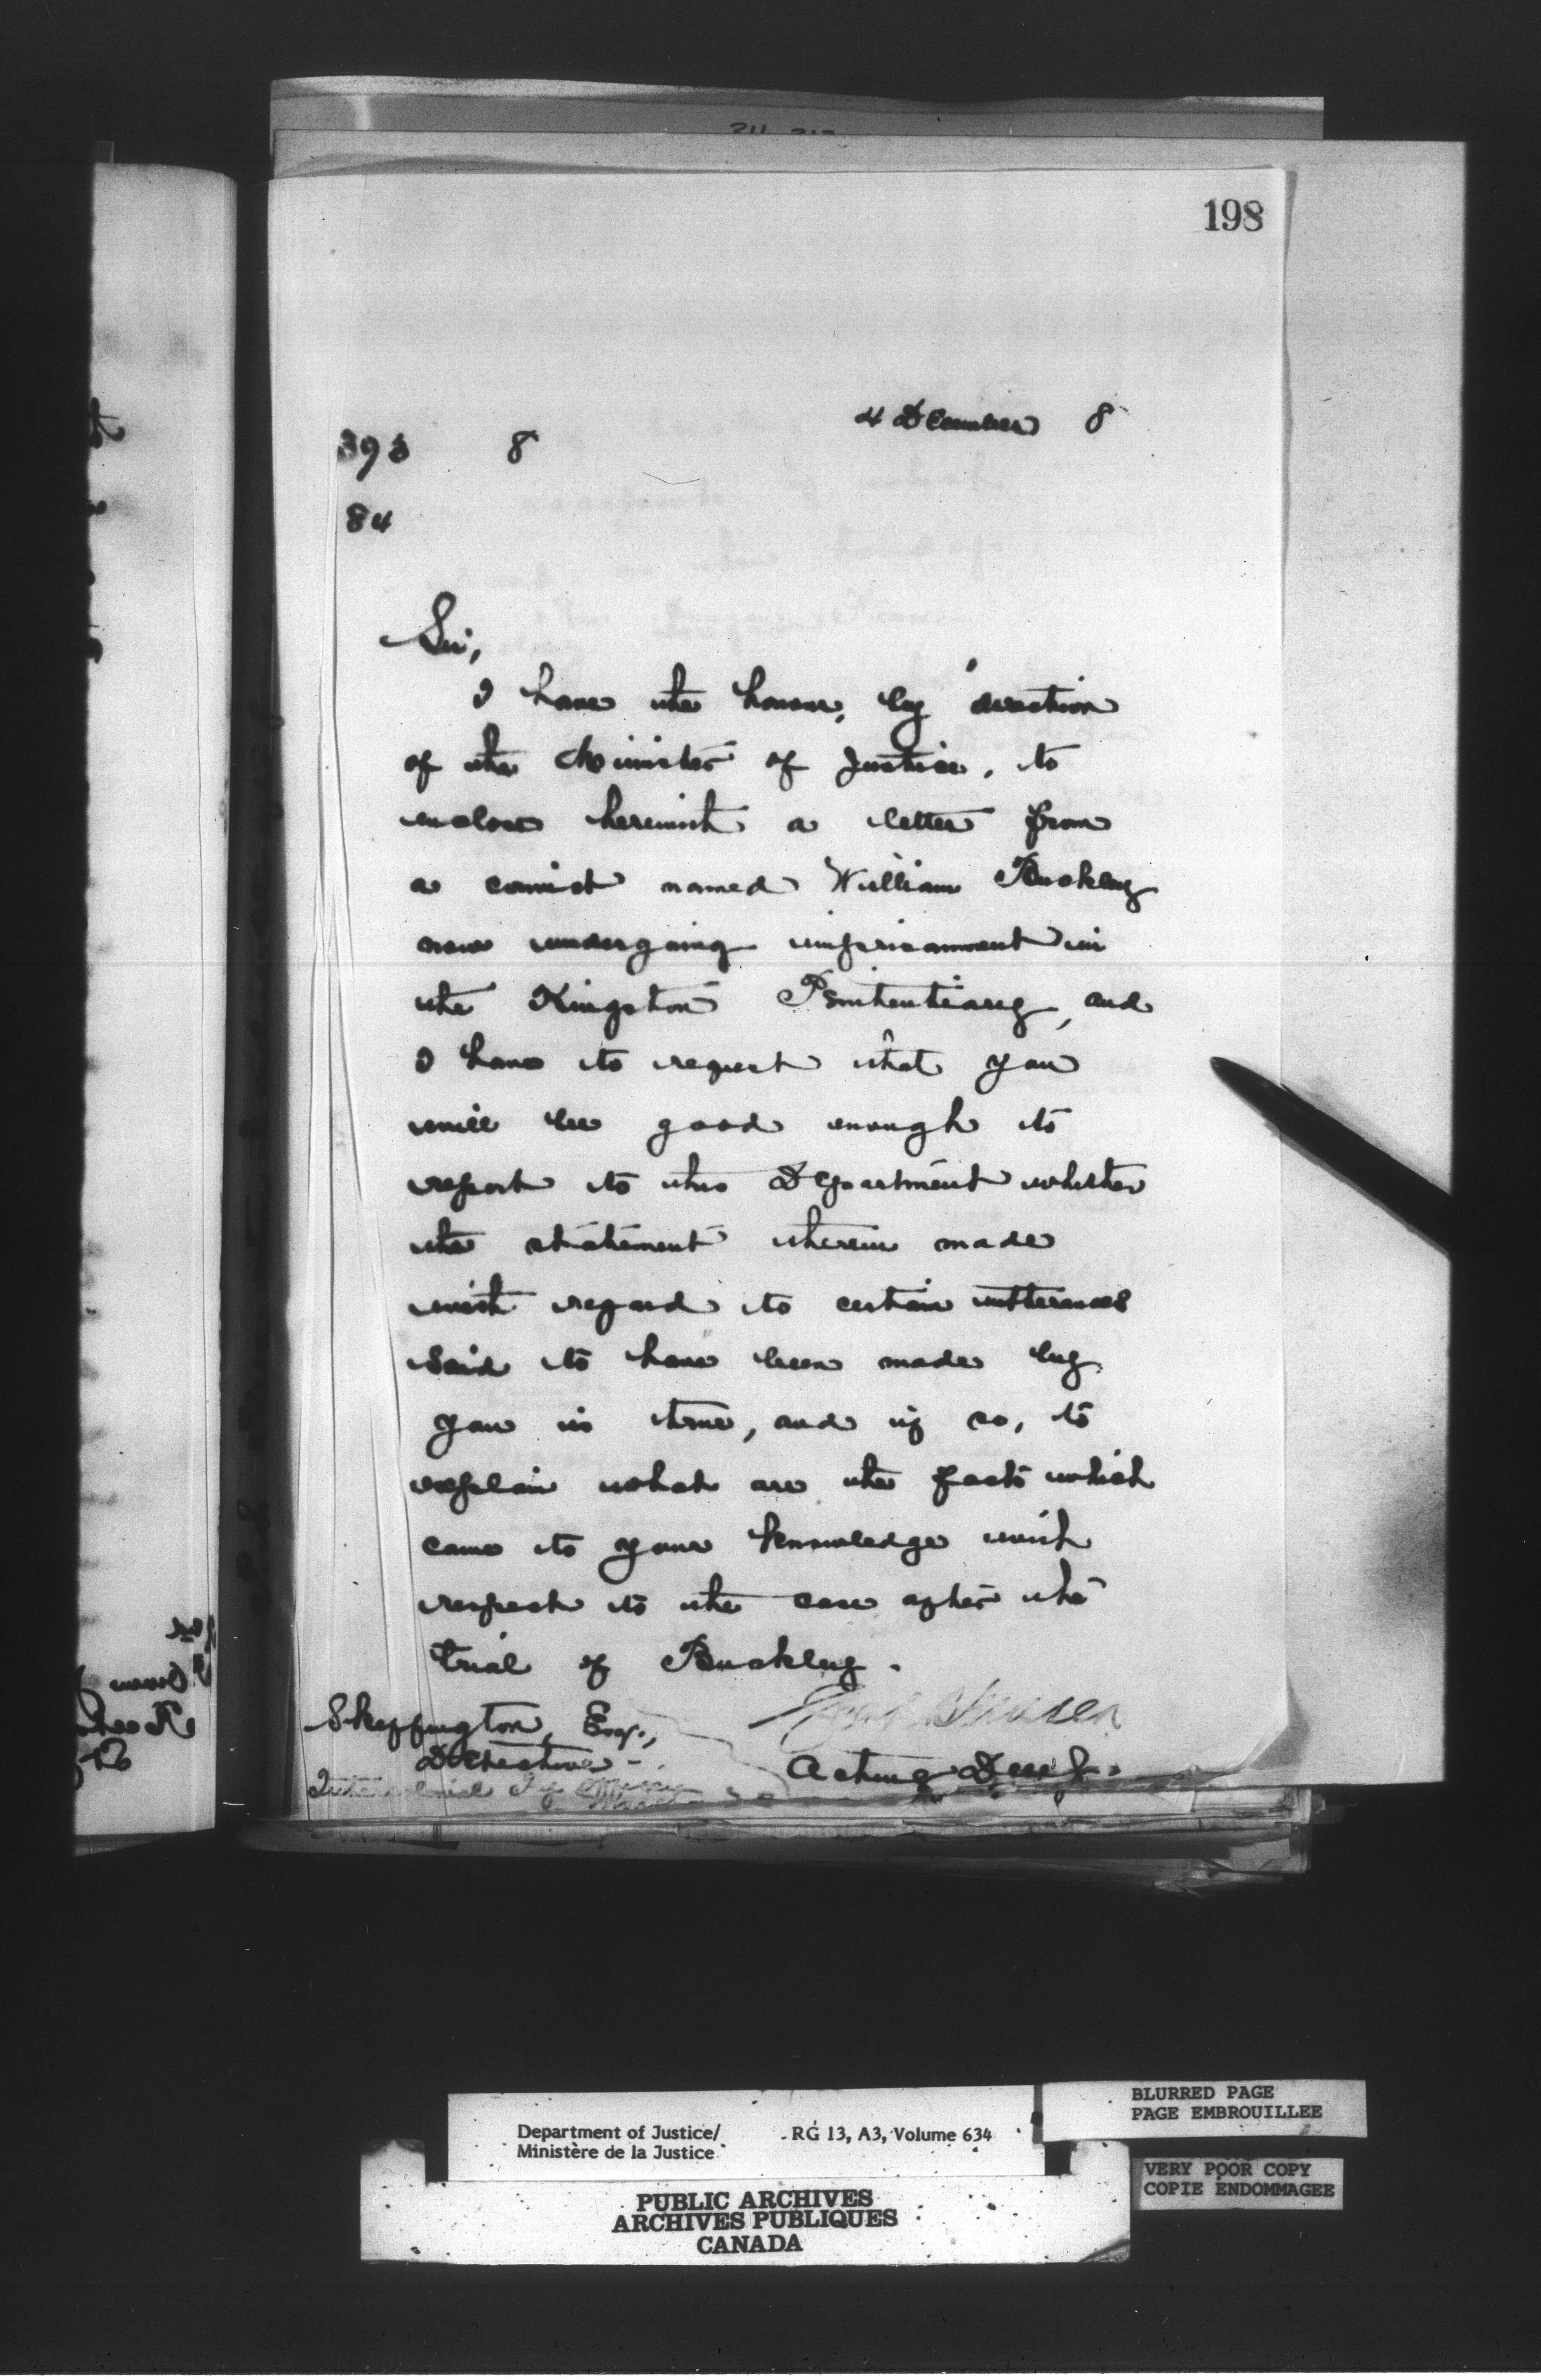 198
4 December 8
393 8
84
Sir,
I have the honour, by direction
of the Minister of Justice, to
enclose herewith a letter from
a convict named William Buckley
now undergoing imprisonment in
the Kingston Penitentiary, and
I have to request that you
will be good enough to
report to this Department whether
the statement therein made
with regard to certain utterances
said to have been made by
you is true, and if so, to
explain what are the facts which
came to your knowledge with
respect to the case after the
trial of Buckley.
Skeffington, Esq.,
Detective
Intercolonial Ry
Acting
Department of Justice/ RG 13, A3, Volume 634
Ministère de la Justice
BLURRED PAGE
PAGE EMBROUILLEE
VERY POOR COPY
COPIE ENDOMMAGEE
PUBLIC ARCHIVES
ARCHIVES PUBLIQUES
CANADA